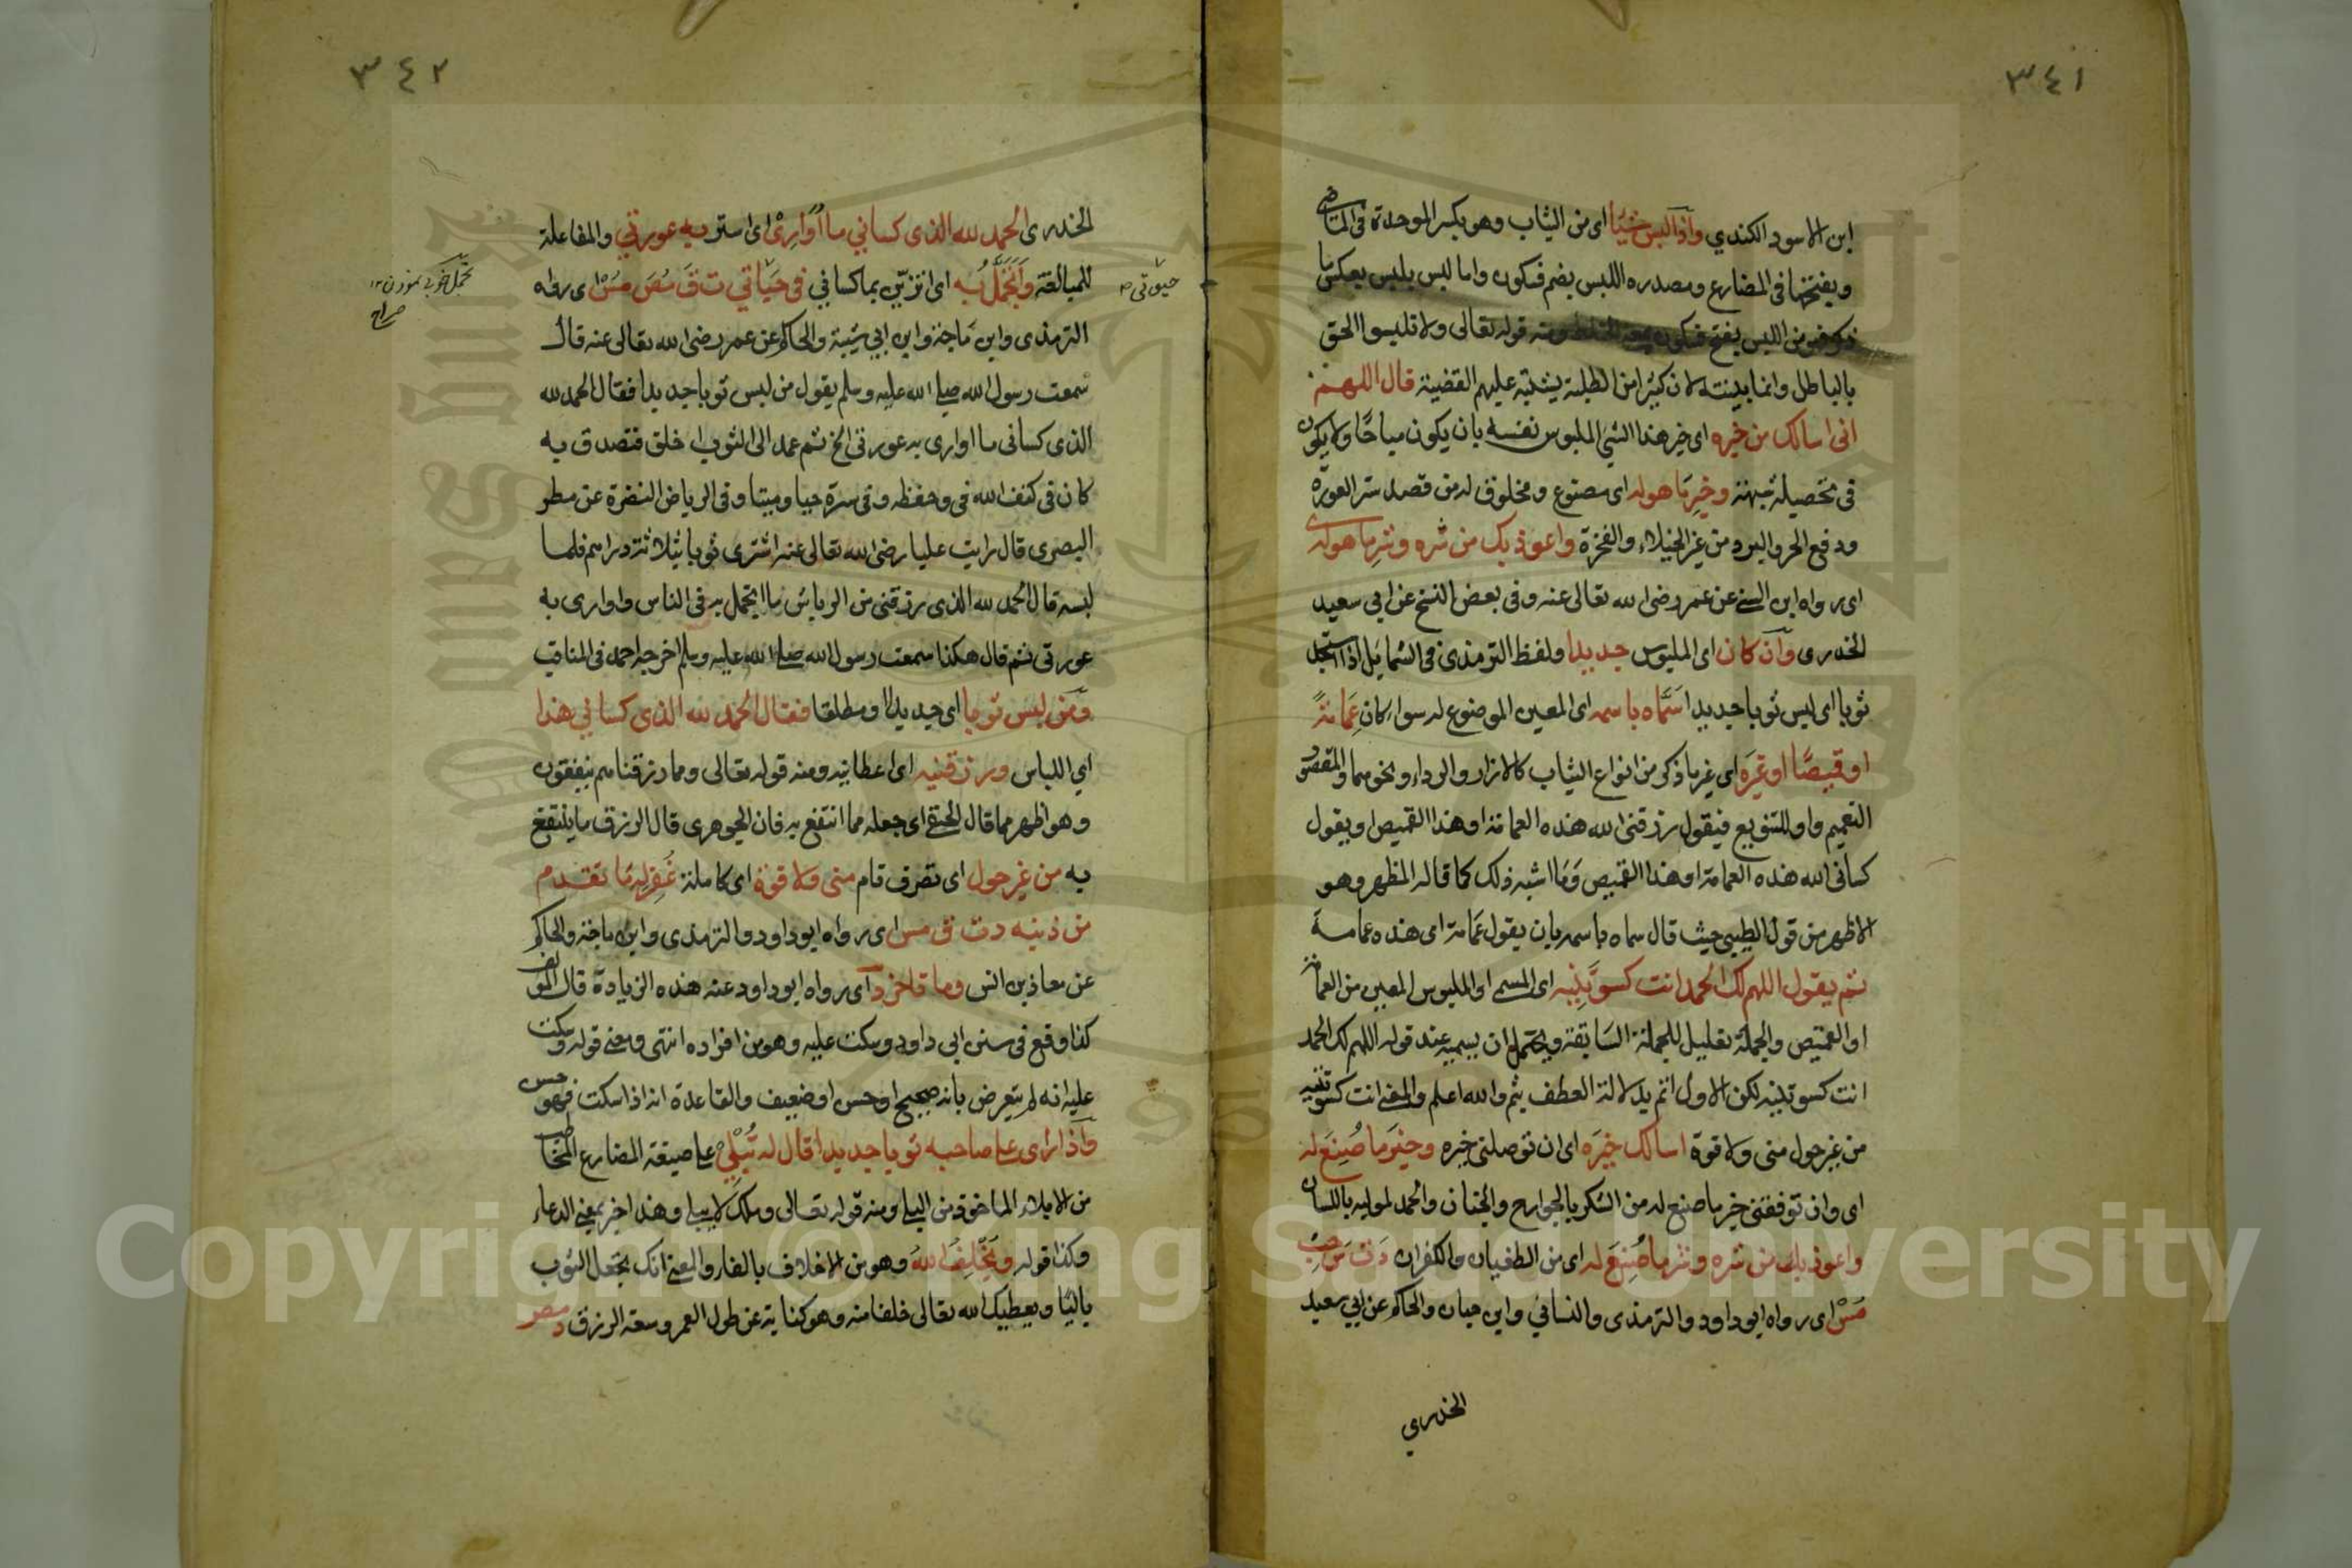 ٣٤١
ابن الاسود الكندي واذا لبس شيئا اى من الثياب وهو بكسر الموحدة فى الماضى
ويفتحها فى المضارع ومصدره اللبس بضم فسكون واما لبس يلبس بعكس ما
ذكر فهو من اللبس بفتح فسكون ومنه قوله تعالى ولا تلبسوا الحق
بالباطل وانما بينته لان كثيرا من الطلبة يشتبه عليهم القضية قال اللهم
انى اسالك من خيره اى خير هذا الشئ الملبوس نفسه بان يكون مباحا ولا يكون
فى تحصيله شبهة وخير ما هو له اى مصنوع ومخلوق له من قصد ستر العورة
ودفع الحر والبرد من غير الخيلاء والفخرة واعوذ بك من شره وشر ما هو له ى
اى رواه ابن السنى عن عمر رضى الله تعالى عنه وفى بعض النسخ عن ابي سعيد
الخدرى وان كان اى الملبوس جديدا ولفظ الترمذى فى الشمايل اذا استجد
ثوبا اى لبس ثوبا جديدا سماه باسمه اى المعين الموضوع له سواء كان عمامة
او قميصا او غيره اى غير ما ذكر من انواع الثياب كالازار والرداء ونحوهما والمقصود
التعميم واو للتنويع فيقول رزقنى الله هذه العمامة او هذا القميص او يقول
كسانى الله هذه العمامة او هذا القميص وما اشبه ذلك كما قاله المظهر وهو
الاظهر من قول الطيبي حيث قال سماه باسمه بان يقول عمامة اى هذه عمامة
ثم يقول اللهم لك الحمد انت كسوتنيه اى المسمى او الملبوس المعين من العمامة
او القميص والجملة تعليل للجملة السابقة ويحتمل ان يسميه عند قوله اللهم لك الحمد
انت كسوتنيه لكن الاول اتم بدلالة العطف بثم والله اعلم والمعنى انت كسوتنيه
من غير حول منى ولا قوة اسالك خيره اى ان توصلنى خيره وخير ما صنع له
اى وان توفقنى خير ما صنع له من الشكر بالجوارح والجنان والحمد لموليه باللسان
واعوذ بك من شره وشر ما صنع له اى من الطغيان والكفران د ت س حب
مس اى رواه ابو داود والترمذى والنسائي وابن حبان والحاكم عن ابي سعيد
الخدري
٣٤٢
الخدرى الحمد لله الذى كساني ما اوارى اى استر به عورتي والمفاعلة
للمبالغة واتجمل به اى اتزين بما كسانى فى حياتي ت ق مص مس اى رواه
الترمذى وابن ماجة وابن ابي شيبة والحاكم عن عمر رضى الله تعالى عنه قال
سمعت رسول الله صلى الله عليه وسلم يقول من لبس ثوبا جديدا فقال الحمد لله
الذى كسانى ما اوارى به عورتى الخ ثم عمد الى الثوب اخلق فتصدق به
كان فى كنف الله فى وحفظه وفى ستره حيا وميتا وفى الرياض النضرة عن مطر
البصرى قال رايت عليا رضى الله تعالى عنه اشترى ثوبا بثلاثة دراهم فلما
لبسه قال الحمد لله الذى رزقنى من الرياش ما اتجمل به فى الناس واوارى به
عورتى ثم قال هكذا سمعت رسول الله صلى الله عليه وسلم اخرجه احمد فى المناقب
ومن لبس ثوبا اى جديدا او مطلقا فقال الحمد لله الذى كساني هذا
اي اللباس ورزقنيه اى اعطانيه ومنه قوله تعالى ومما رزقناهم ينفقون
وهو اظهر مما قال الحنفى اى جعله مما انتفع به فان الجوهرى قال الرزق ما ينتفع
به من غير حول اى تصرف تام منى ولا قوة اى كاملة غفر له ما تقدم
من ذنبه د ت ق مس اى رواه ابو داود والترمذى وابن ماجة والحاكم
عن معاذ بن انس وما تاخر د اى رواه ابو داود عنه هذه الزيادة قال المؤلف
كذا وقع فى سنن ابى داود وسكت عليه وهو من افراده انتهى ومعنى قوله وسكت
عليه انه لم يتعرض بانه صحيح او حسن او ضعيف والقاعدة انه اذا سكت فهو حسن
واذا راى على صاحبه ثوبا جديدا قال له تبلى على صيغة المضارع المخاطب
من الابلاء الماخوذ من البلى ومنه قوله تعالى وملك لا يبلى وهذا خبر بمعنى الدعاء
وكذا قوله ويخلف الله وهو من الاخلاف بالفاء والمعنى انك تجعل الثوب
باليا ويعطيك الله تعالى خلفا منه وهو كناية عن طول العمر وسعة الرزق د مص
حيوتى
تجمل خوبى نمودن ١٢
صراح
Copyright © King Saud University